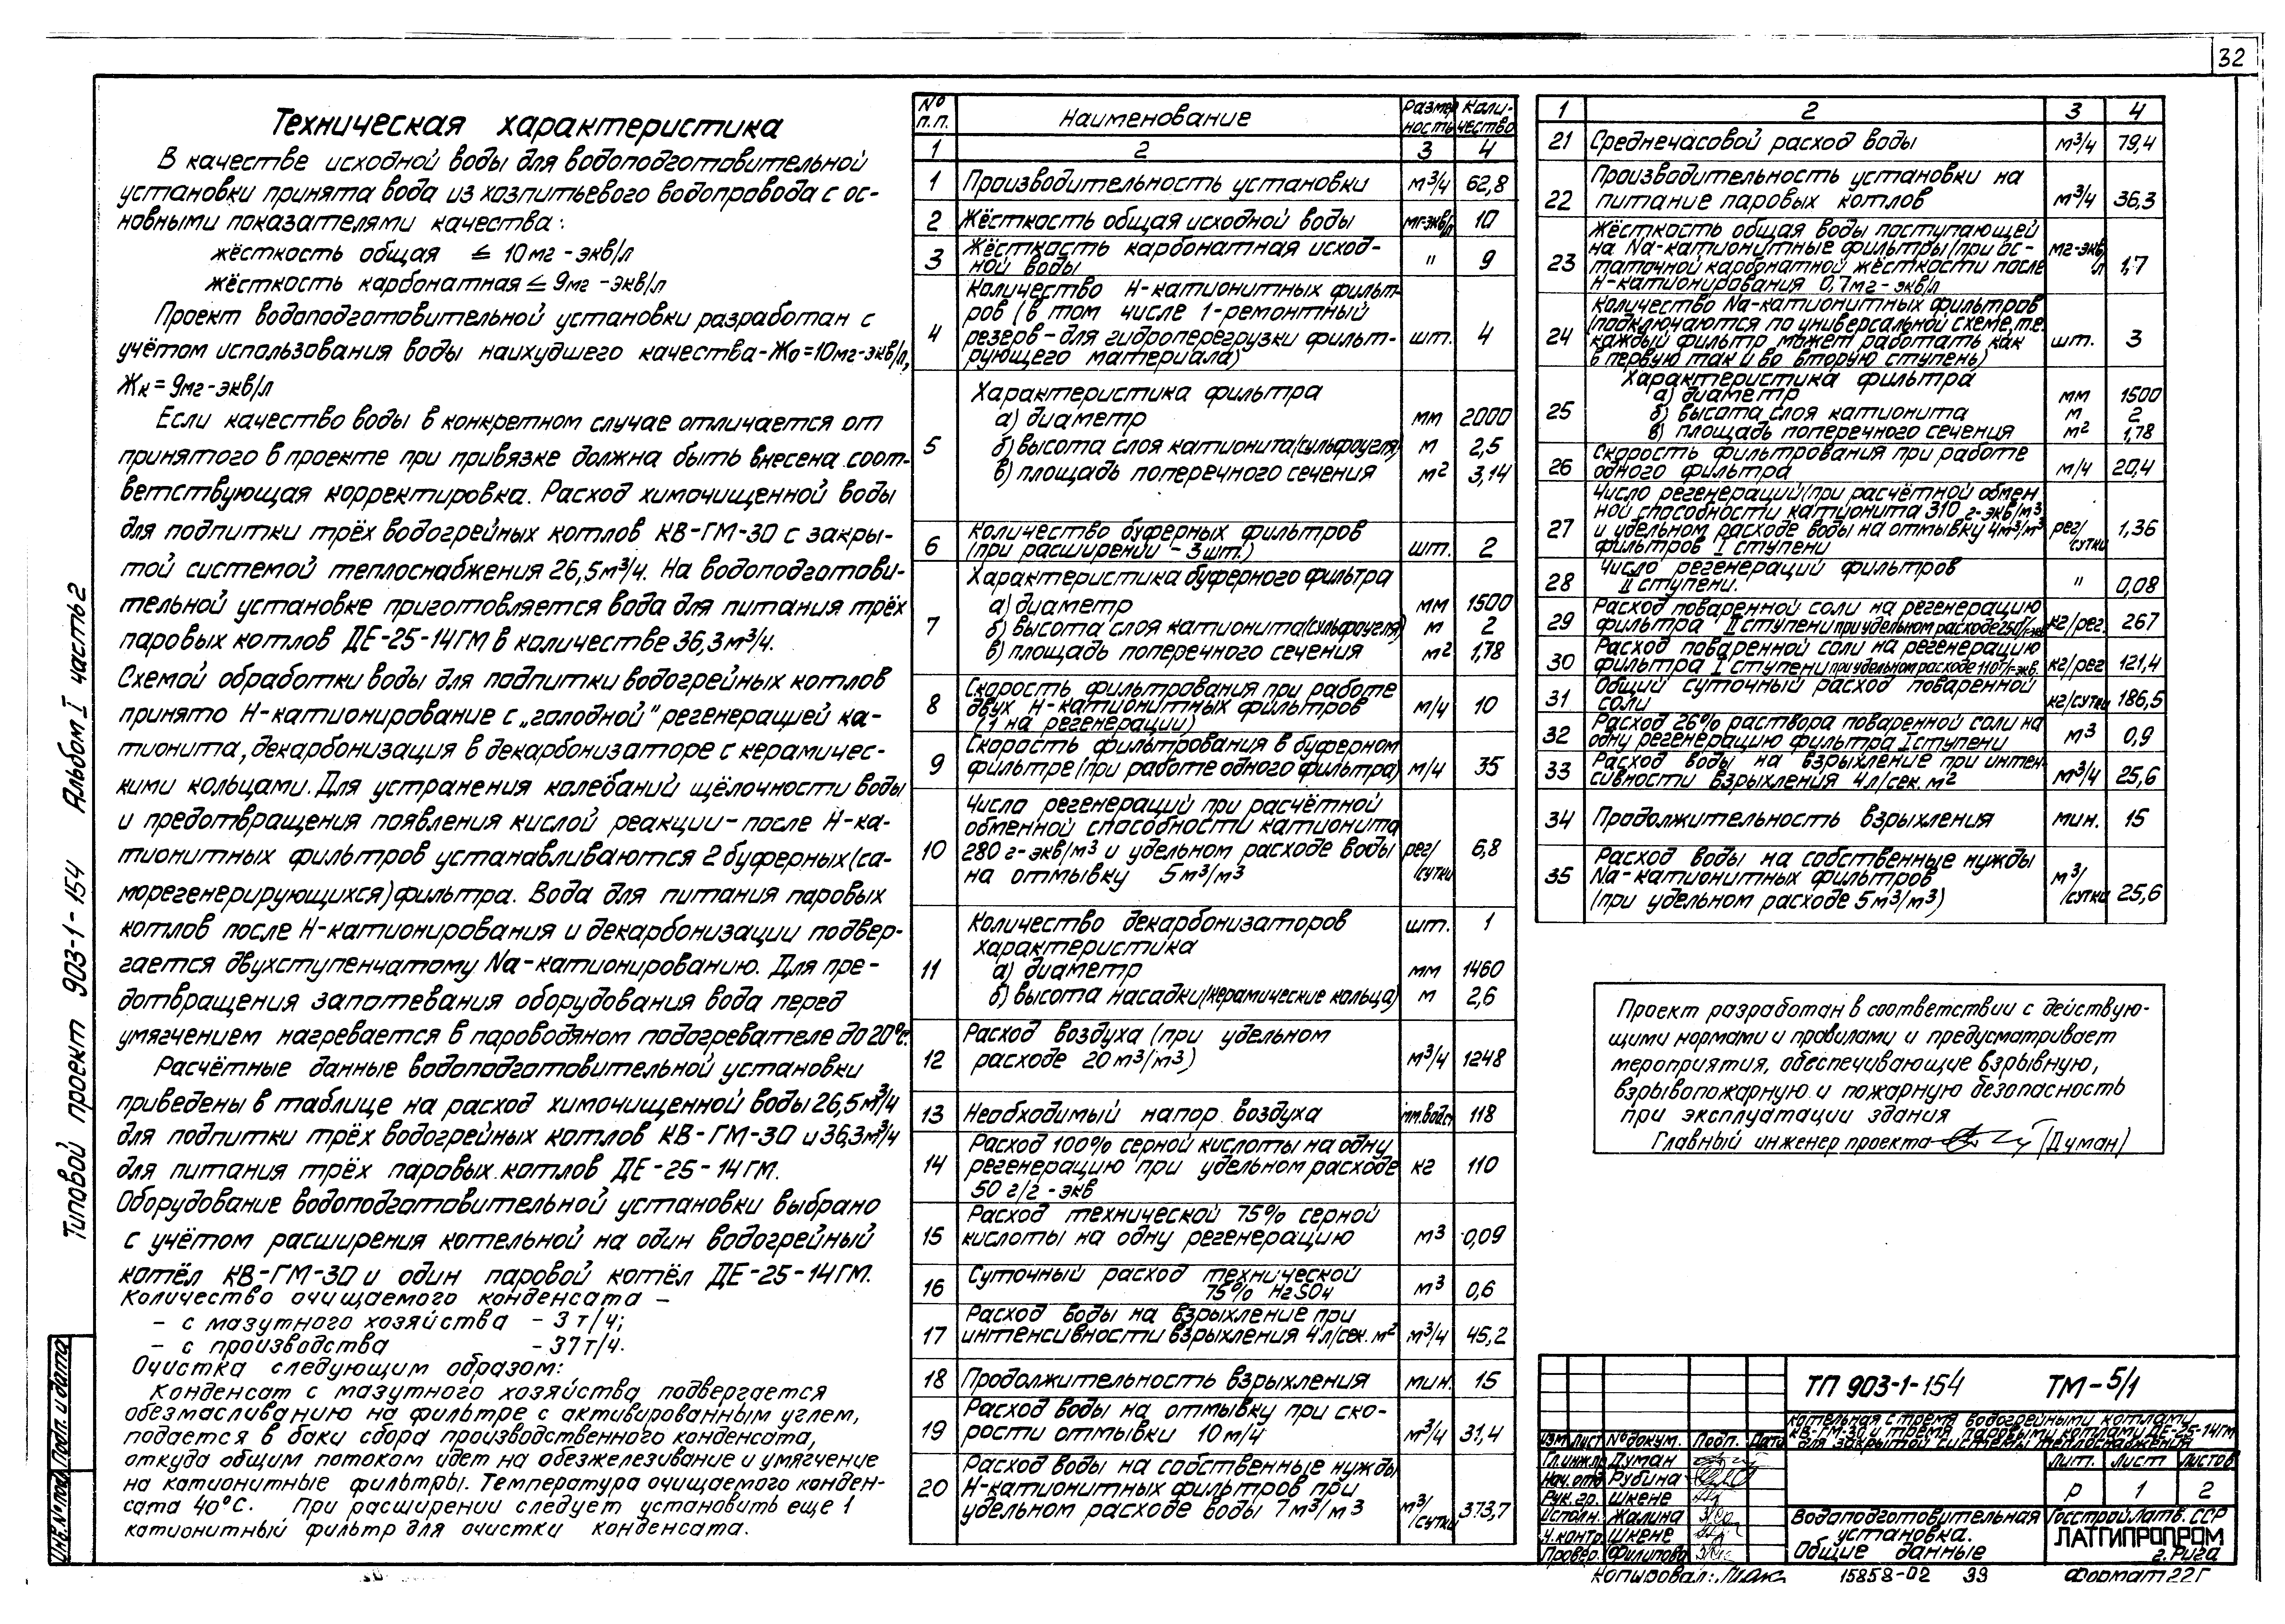 32
Техническая характеристика
В качестве исходной воды для водоподготовительной
установки принята вода из хозпитьевого водопровода с ос-
новными показателями качества:
жёсткость общая ≤ 10мг-экв/л
жёсткость карбонатная ≤ 9мг-экв/л
Проект водоподготовительной установки разработан с
учётом использования воды наихудшего качества-Жо=10мг-экв/л,
Жк=9мг-экв/л
Если качество воды в конкретном случае отличается от
принятого в проекте при привязке должна быть внесена соот-
ветствующая корректировка. Расход химочищенной воды
для подпитки трёх водогрейных котлов КВ-ГМ-30 с закры-
той системой теплоснабжения 26,5м³/ч. На водоподготови-
тельной установке приготовляется вода для питания трёх
паровых котлов ДЕ-25-14ГМ в количестве 36,3м³/ч.
Схемой обработки воды для подпитки водогрейных котлов
принято Н-катионирование с „голодной" регенерацией ка-
тионита, декарбонизация в декарбонизаторе с керамичес-
кими кольцами. Для устранения колебаний щёлочности воды
и предотвращения появления кислой реакции-после Н-ка-
тионитных фильтров устанавливаются 2 буферных (са-
морегенерирующихся) фильтра. Вода для питания паровых
котлов после Н-катионирования и декарбонизации подвер-
гается двухступенчатому Na-катионированию. Для пре-
дотвращения запотевания оборудования вода перед
умягчением нагревается в пароводяном подогревателе до 20°с.
Расчётные данные водоподготовительной установки
приведены в таблице на расход химочищенной воды 26,5м³/ч
для подпитки трёх водогрейных котлов КВ-ГМ-30 и 36,3м³/ч
для питания трёх паровых котлов ДЕ-25-14ГМ.
Оборудование водоподготовительной установки выбрано
с учётом расширения котельной на один водогрейный
котёл КВ-ГМ-30 и один паровой котёл ДЕ-25-14ГМ.
Количество очищаемого конденсата –
– с мазутного хозяйства – 3 т/ч;
– с производства – 37т/ч.
Очистка следующим образом:
Конденсат с мазутного хозяйства подвергается
обезмасливанию на фильтре с активированным углем,
подается в баки сбора производственного конденсата,
откуда общим потоком идет на обезжелезивание и умягчение
на катионитные фильтры. Температура очищаемого конден-
сата 40°С. При расширении следует установить еще 1
катионитный фильтр для очистки конденсата.
№ п.п. Наименование Размер ность Коли- чество
1 2 3 4
1 Производительность установки м³/ч 62,8
2 Жёсткость общая исходной воды мг-экв/л 10
3 Жёсткость карбонатная исход-
ной воды " 9
Количество Н-катионитных фильт-
ров (в том числе 1-ремонтный
4 резерв-для гидроперегрузки фильт- шт. 4
рующего материала)
Характеристика фильтра
а) диаметр мм 2000
5 б) высота слоя катионита (сульфоугля) м 2,5
в) площадь поперечного сечения м² 3,14
Количество буферных фильтров
6 (при расширении – 3шт.) шт. 2
Характеристика буферного фильтра
а) диаметр мм 1500
7 б) высота слоя катионита (сульфоугля) м 2
в) площадь поперечного сечения м² 1,78
Скорость фильтрования при работе
8 двух Н-катионитных фильтров м/ч 10
(1 на регенерации)
Скорость фильтрования в буферном
9 фильтре (при работе одного фильтра) м/ч 35
Число регенераций при расчётной
обменной способности катионита
10 280 г-экв/м³ и удельном расходе воды рег/сутки 6,8
на отмывку 5м³/м³
Количество декарбонизаторов шт. 1
характеристика
11 а) диаметр мм 1460
б) высота насадки (керамические кольца) м 2,6
Расход воздуха (при удельном
12 расходе 20м³/м³) м³/ч 1248
13 Необходимый напор воздуха мм.вод.ст 118
Расход 100% серной кислоты на одну
14 регенерацию при удельном расходе кг 110
50 г/г-экв
Расход технической 75% серной
15 кислоты на одну регенерацию м³ 0,09
Суточный расход технической
16 75% H2SO4 м³ 0,6
Расход воды на взрыхление при
17 интенсивности взрыхления 4л/сек. м² м³/ч 45,2
18 Продолжительность взрыхления мин. 15
Расход воды на отмывку при ско-
19 рости отмывки 10м/ч м³/ч 31,4
Расход воды на собственные нужды
20 Н-катионитных фильтров при
удельном расходе воды 7м³/м³ м³/сутки 373,7
1 2 3 4
21 Среднечасовой расход воды м³/ч 79,4
Производительность установки на
22 питание паровых котлов м³/ч 36,3
Жёсткость общая воды поступающей
на Na-катионитные фильтры (при ос-
23 таточной карбонатной жёсткости после мг-экв/л 1,7
Н-катионирования 0,7мг-экв/л
Количество Na-катионитных фильтров
(подключаются по универсальной схеме, т.е.
24 каждый фильтр может работать как шт. 3
в первую так и во вторую ступень)
Характеристика фильтра
а) диаметр мм 1500
25 б) высота слоя катионита м 2
в) площадь поперечного сечения м² 1,78
Скорость фильтрования при работе
26 одного фильтра м/ч 20,4
Число регенераций (при расчётной обмен
ной способности катионита 310 г-экв/м³
27 и удельном расходе воды на отмывку 4м³/м³ рег/сутки 1,36
фильтров I ступени
Число регенераций фильтров
28 II ступени. " 0,08
Расход поваренной соли на регенерацию
29 фильтра II ступени при удельном расходе 250г/г-экв кг/рег. 267
Расход поваренной соли на регенерацию
30 фильтра I ступени при удельном расходе 110г/г-экв. кг/рег 121,4
Общий суточный расход поваренной
31 соли кг/сутки 186,5
Расход 26% раствора поваренной соли на
32 одну регенерацию фильтра I ступени м³ 0,9
Расход воды на взрыхление при интен-
33 сивности взрыхления 4л/сек.м² м³/ч 25,6
34 Продолжительность взрыхления мин. 15
Расход воды на собственные нужды
35 Na-катионитных фильтров
(при удельном расходе 5м³/м³) м³/сутки 25,6
Проект разработан в соответствии с действую-
щими нормами и правилами и предусматривает
мероприятия, обеспечивающие взрывную,
взрывопожарную и пожарную безопасность
при эксплуатации здания
Главный инженер проекта (Думан)
ТП 903-1-154 ТМ-5/1
котельная с тремя водогрейными котлами
КВ-ГМ-30 и тремя паровыми котлами ДЕ-25-14ГМ
для закрытой системы теплоснабжения
Изм Лист № докум. Подп. Дата
Гл.инж.пр Думан
Нач.отд Рубина
Рук.гр. Шкене
Исполн. Жалина
Н.контр. Шкене
Провер. Филипова
Лит. Лист Листов
Р 1 2
Водоподготовительная
установка.
Общие данные
Госстрой Латв. ССР
ЛАТГИПРОПРОМ
г. Рига
Копировал:
15858-02 33
Формат 22Г
Типовой проект 903-1-154 Альбом I часть 2
Инв.№ под. Подп. и дата